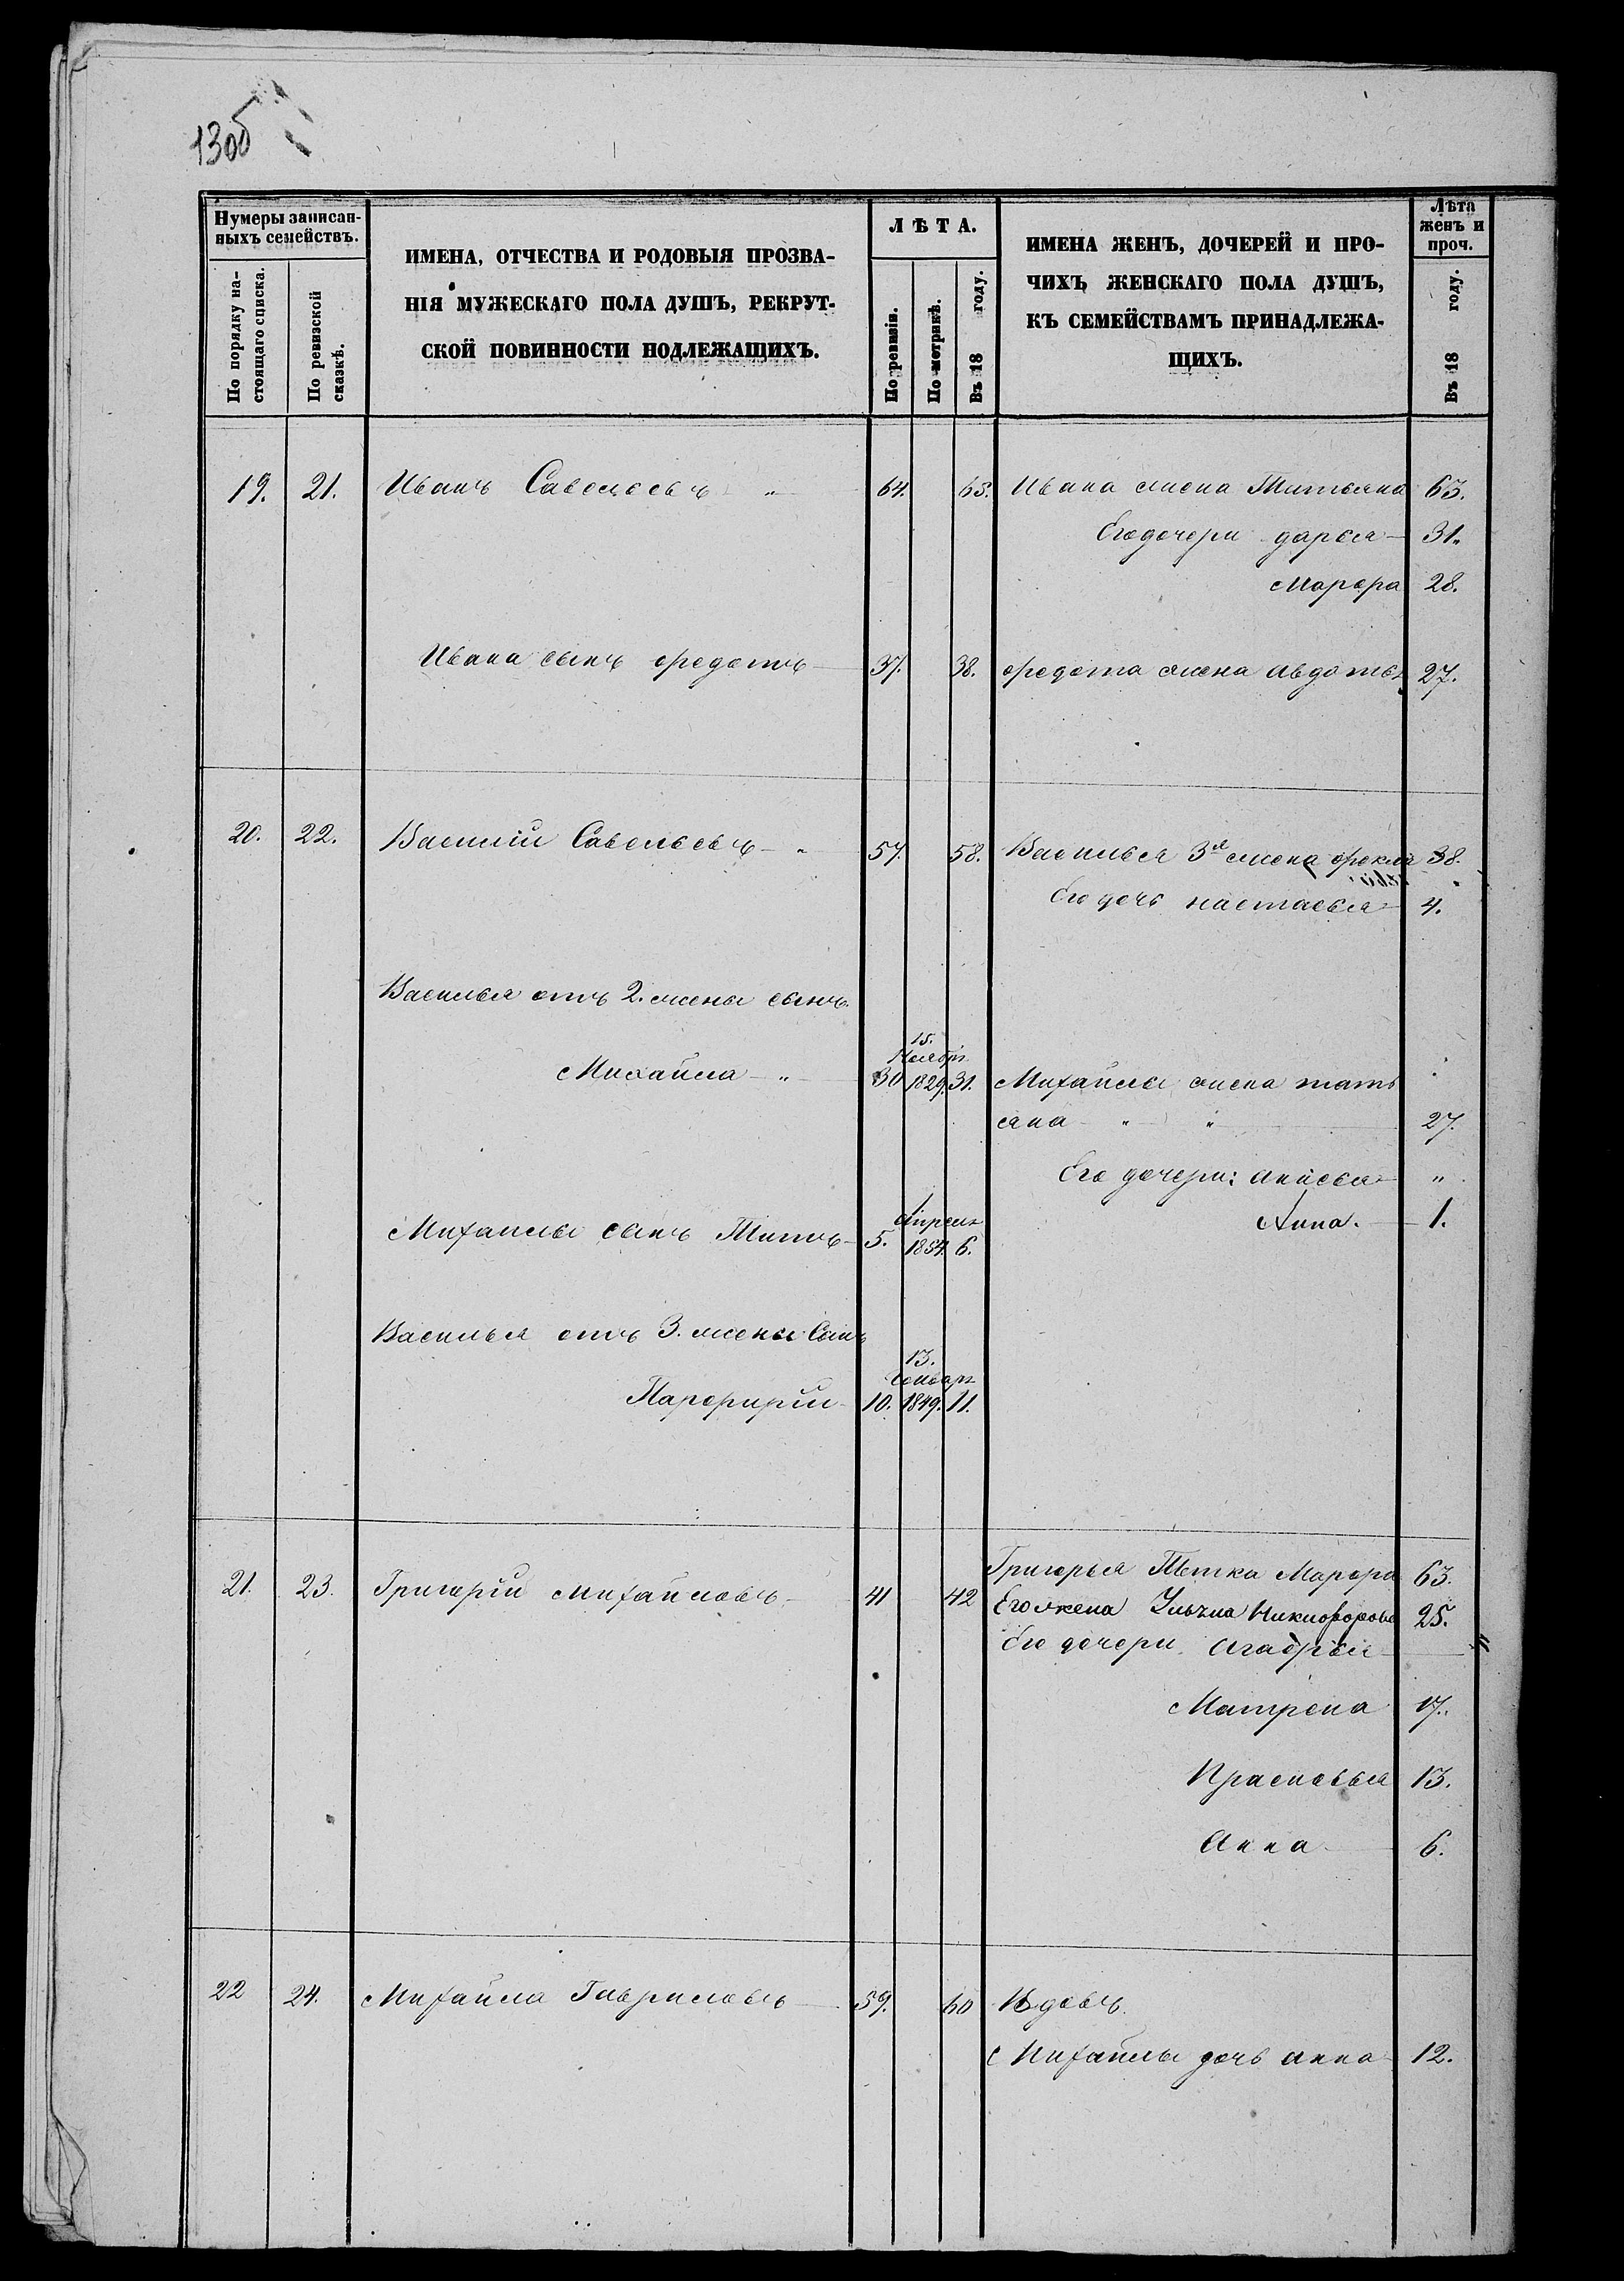 130об
Нумеры записан-
ныхъ семействъ.
По порядку на-
стоящаго списка.
По ревизской
сказкѣ.
ИМЕНА, ОТЧЕСТВА И РОДОВЫЯ ПРОЗВА-
НІЯ МУЖЕСКАГО ПОЛА ДУШЪ, РЕКРУТ-
СКОЙ ПОВИННОСТИ ПОДЛЕЖАЩИХЪ.
ЛѢТА.
По ревизіи.
По метрикѣ.
Въ 18 году.
ИМЕНА ЖЕНЪ, ДОЧЕРЕЙ И ПРО-
ЧИХЪ ЖЕНСКАГО ПОЛА ДУШЪ,
КЪ СЕМЕЙСТВАМЪ ПРИНАДЛЕЖА-
ЩИХЪ.
Лѣта
женъ и
проч.
Въ 18 году.
19. 21. Иванъ Савельевъ " 64. 65. Ивана жена Татьяна 63.
Его дочери дарья 31.
Марфа 28.
Ивана сынъ федотъ 37. 38. федота жена авдотья 27.
20. 22. Василій Савельевъ " 57. 58. Василья 3я жена фекла 38.
Его дочь настасья 4.
Василья отъ 2. жены сынъ
15.
Ноябрь
Михайла " 30 1829. 31. Михайлы жена тать
яна " " 27.
Его дочери: анисья "
Анна. 1.
Апрель
Михайлы сынъ Титъ 5. 1854. 6.
Василья отъ 3. жены Сынъ
13.
Парфирій 10. 1849. 11.
21. 23. Григорій Михайловъ 41 42 Григорья Тетка Марфа 63.
Его жена Никифорова 25.
Его дочери
Матрена 17.
Прасковья 13.
Анна 6.
22 24. Михайла Гавриловъ 59. 60 Вдовъ.
Михайлы дочь анна 12.